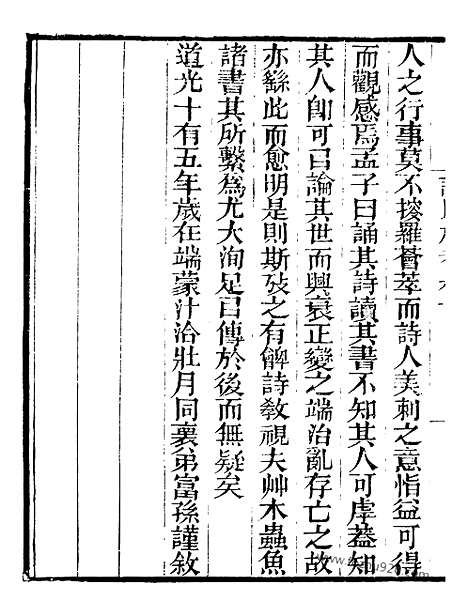 人之行事莫不捘羅薈萃而詩人美刺之意恉益可得
而觀感焉孟子曰誦其詩讀其書不知其人可虖葢知
其人卽可㠯論其世而興衰正變之端治亂存亡之故
亦繇此而愈明是則斯攷之有僻詩敎視夫艸木蟲魚
諸書其所繫爲尤大洵足㠯傳於後而無疑矣
道光十有五年歲在端蒙汁洽壯月同裏弟富孫謹敘